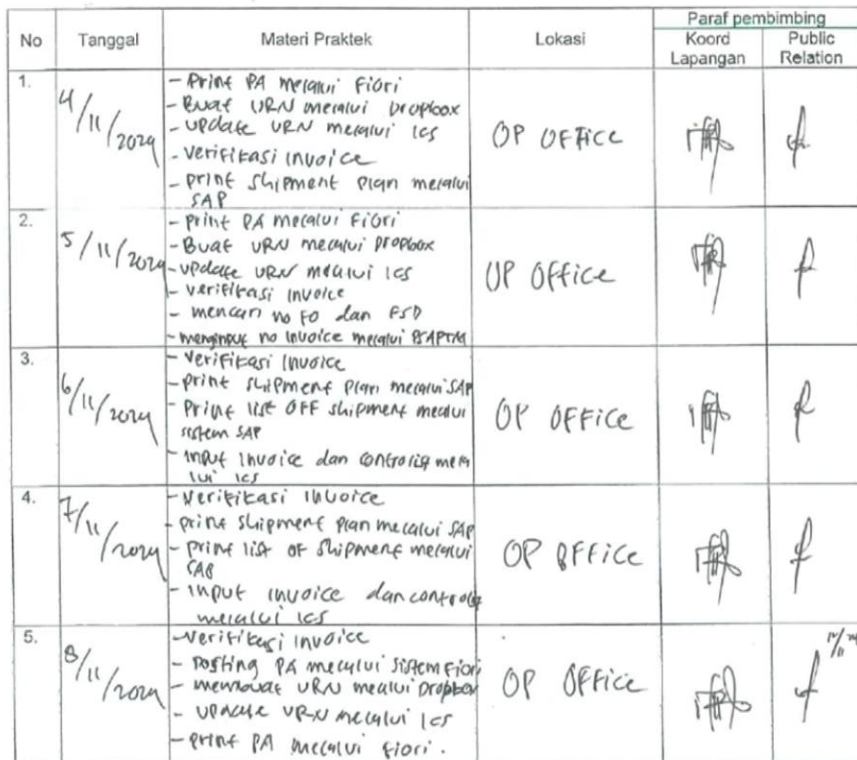 No Tanggal Materi Praktek Lokasi Paraf pembimbing
Koord Lapangan Public Relation
1. 4/11/2024 OP OFFICE
- Print PA melalui Fiori
- Buat URN melalui Dropbox
- Update URN melalui ICS
- Verifikasi Invoice
- print Shipment plan melalui
SAP
2. 5/11/2024 OP OFFICE
- print PA melalui Fiori
- Buat URN melalui Dropbox
- update URN melalui ICS
- verifikasi Invoice
- mencari no FO dan FSD
- menginput no Invoice melalui
3. 6/11/2024 OP OFFICE
- Verifikasi Invoice
- print shipment plan melalui SAP
- Print list OFF shipment melalui
sistem SAP
- Input Invoice dan controlist mela
lui ICS
4. 7/11/2024 OP OFFICE
- Verifikasi Invoice
- print shipment plan melalui SAP
- print list of shipment melalui
SAP
- Input invoice dan controlist
melalui ICS
5. 8/11/2024 OP OFFICE
- verifikasi Invoice
- Posting PA melalui sistem Fiori
- membuat URN melalui Dropbox
- update URN melalui ICS
- print PA melalui Fiori.